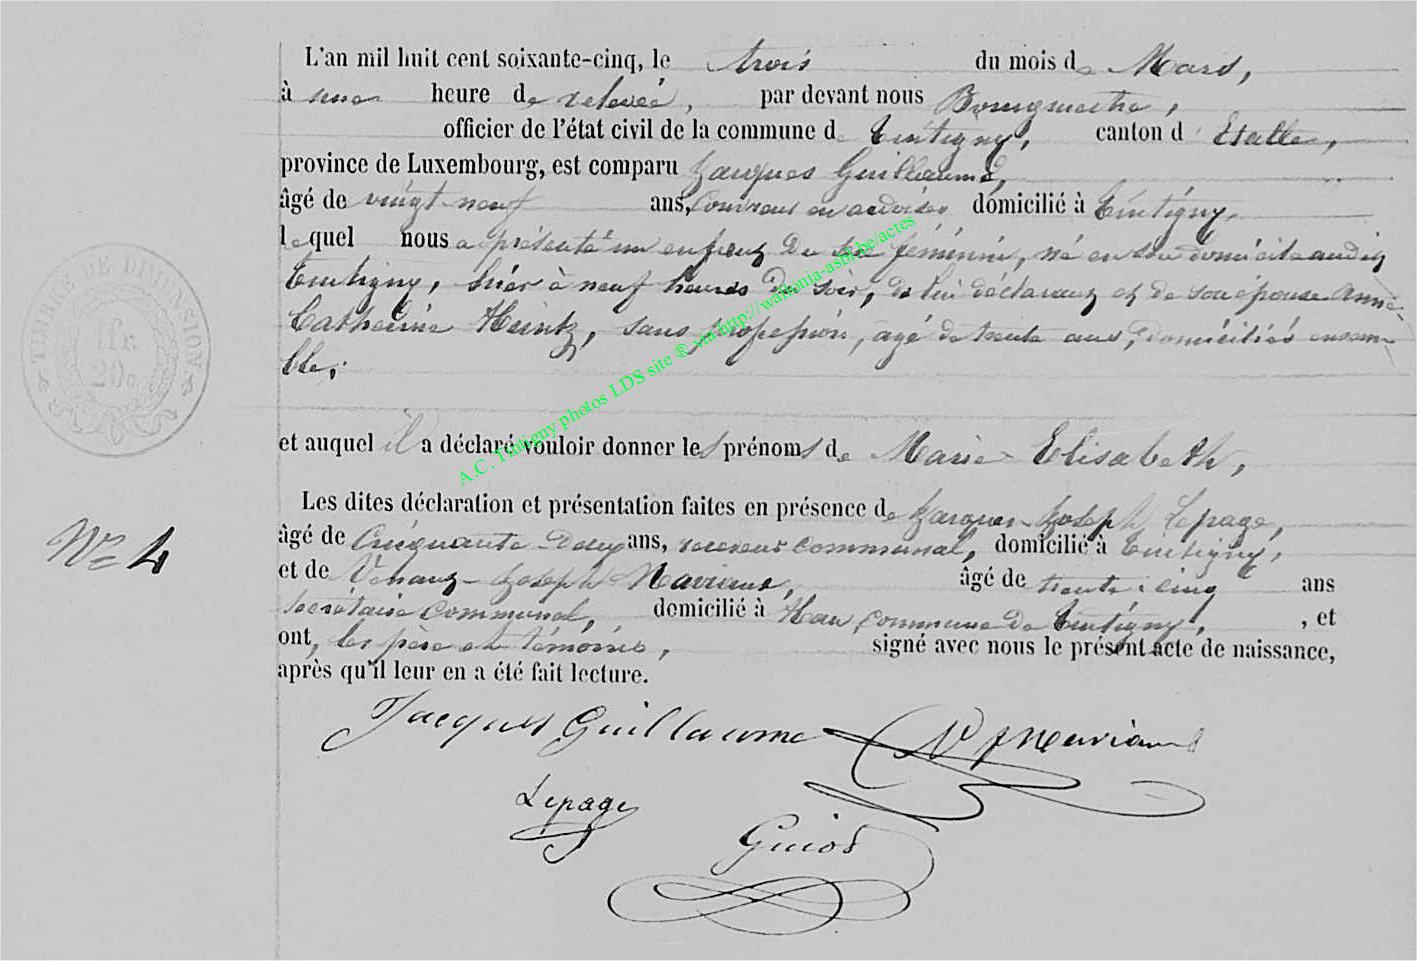 L'an mil huit cent soixante-cinq, le trois du mois de Mars,
à une heure de relevée, par devant nous Bourgmestre,
officier de l'état civil de la commune de Tintigny, canton d'Etalle,
province de Luxembourg, est comparu Jacques Guillaume,
âgé de vingt-neuf ans, Couvreur en ardoises domicilié à Tintigny,
lequel nous a présenté un enfant du sexe féminin, né en son domicile audit
Tintigny, hier à neuf heures du soir, de lui déclarant et de son épouse Anne-
Catherine Heintz, sans profession, agé de trente ans, domiciliés ensem-
ble;
et auquel il a déclaré vouloir donner les prénoms de Marie Elisabeth,
Les dites déclaration et présentation faites en présence de Jacques-Joseph Lepage,
âgé de Cinquante-Deux ans, receveur communal, domicilié à Tintigny,
et de Joseph âgé de trente-cinq ans
secrétaire communal, domicilié à Han, commune de Tintigny, , et
ont, les père et témoins, signé avec nous le présent acte de naissance,
après qu'il leur en a été fait lecture.
Jacques Guillaume
Lepage
Guiot
Nº 4
TIMBRE DE DIMENSION
1 fr.
20c
A.C. Tintigny photos LDS site ® via http://wallonia-asbl.be/actes